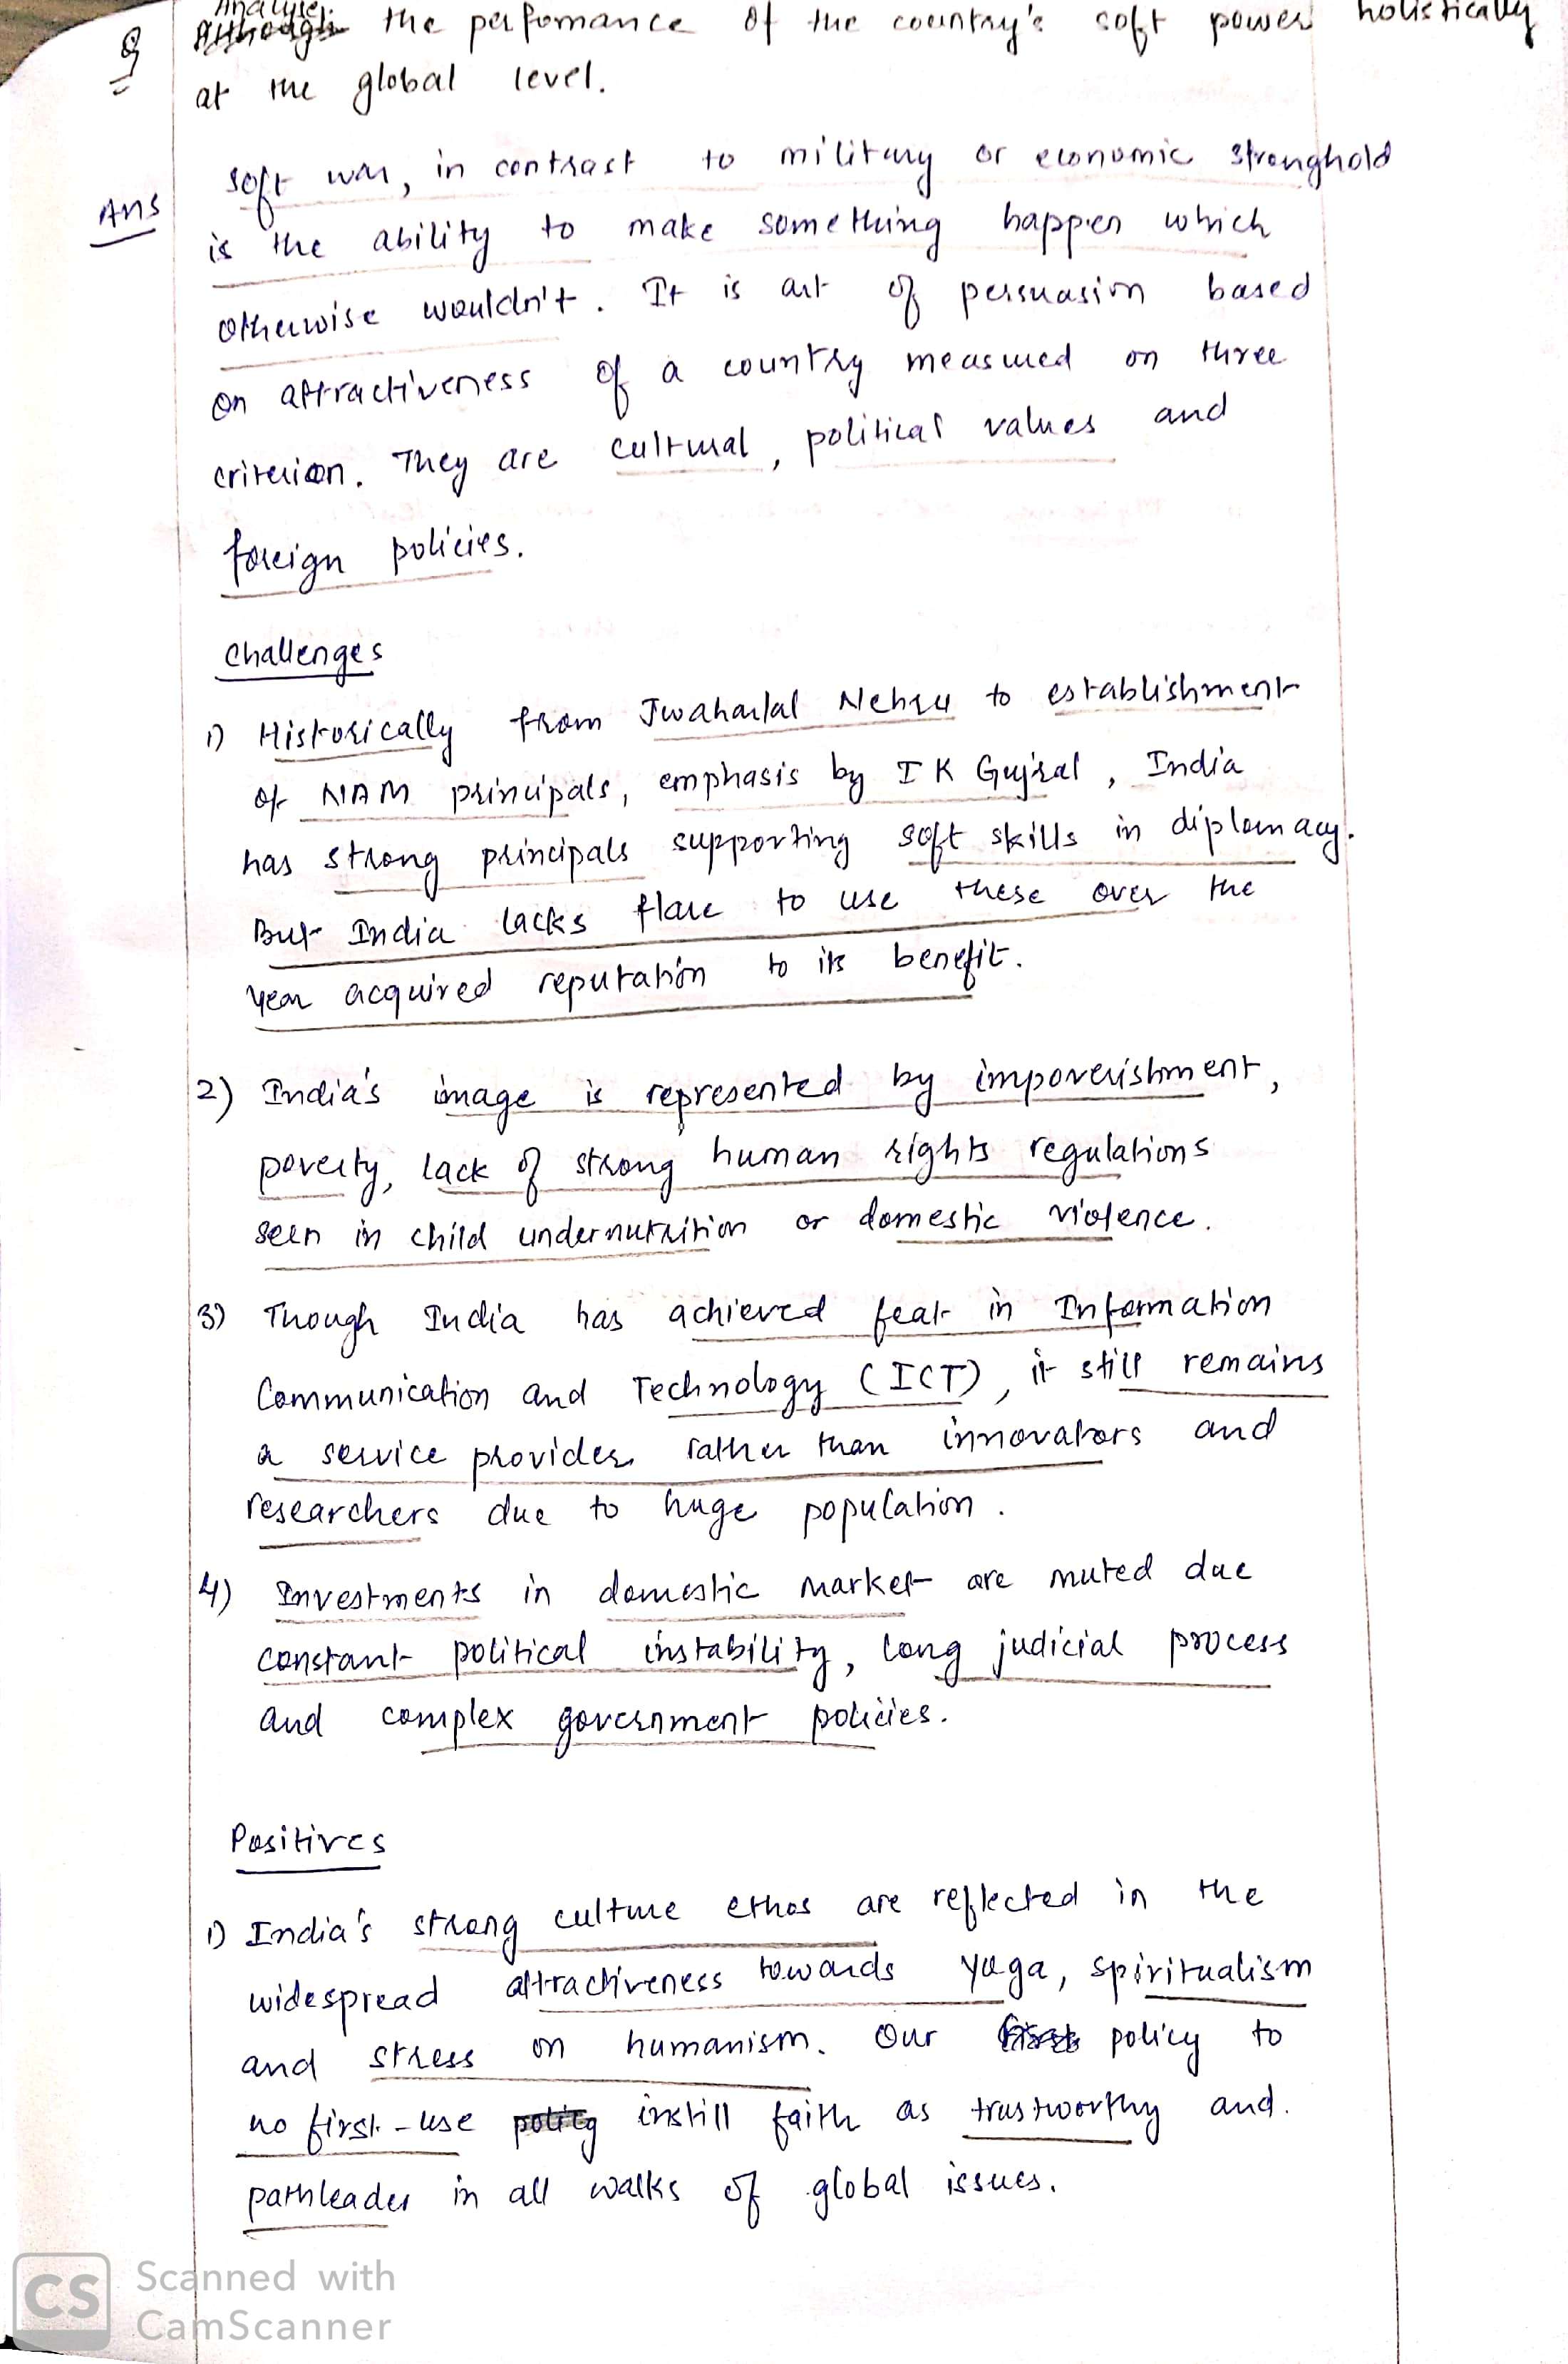 Q Analyse the perfomance of the country's soft power holistically
at the global level.
Ans soft war, in contrast to military or economic stronghold
is the ability to make something happen which
otherwise wouldn't. It is art of persuasion based
on attractiveness of a country measured on three
criterion. They are cultural, political values and
foreign policies.
Challenges
1) Historically from Jwaharlal Nehru to establishment
of NAM principals, emphasis by I K Gujral, India
has strong principals supporting soft skills in diplomacy.
But India lacks flare to use these over the
year acquired reputation to its benefit.
2) India's image is represented by impoverishment,
poverty, lack of strong human rights regulations
seen in child undernutrition or domestic violence.
3) Though India has achieved feat in Information
Communication and Technology (ICT), it still remains
a service provider rather than innovators and
researchers due to huge population.
4) Investments in domestic market are muted due
constant political instability, long judicial process
and complex government policies.
Positives
1) India's strong culture ethos are reflected in the
widespread attractiveness towards yoga, spiritualism
and stress on humanism. Our policy to
no first-use instill faith as trustworthy and.
pathleader in all walks of global issues.
CS Scanned with
CamScanner